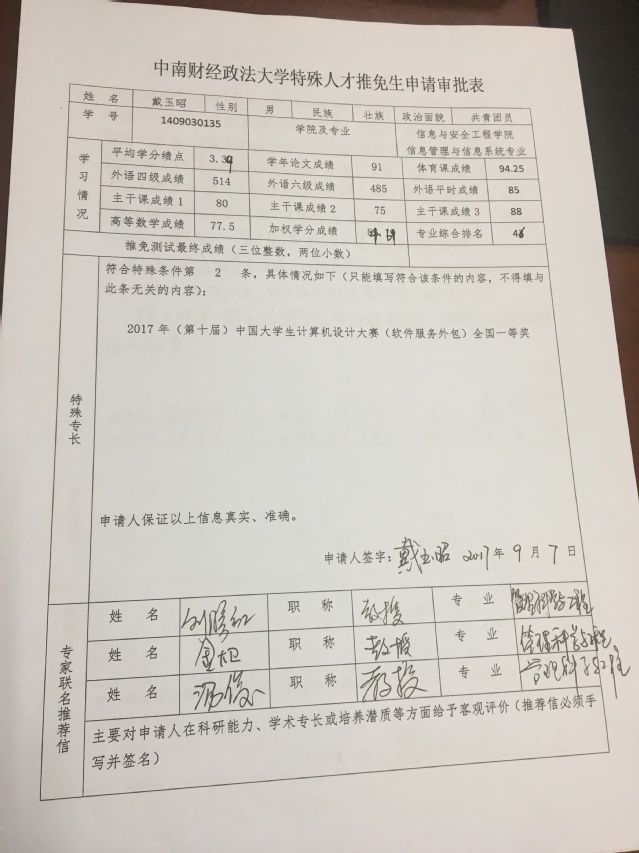 中南财经政法大学特殊人才推免生申请审批表
姓 名 戴玉昭 性别 男 民族 壮族 政治面貌 共青团员
学 号 1409030135 学院及专业 信息与安全工程学院
信息管理与信息系统专业
学习情况
平均学分绩点 3.39 学年论文成绩 91 体育课成绩 94.25
外语四级成绩 514 外语六级成绩 485 外语平时成绩 85
主干课成绩1 80 主干课成绩2 75 主干课成绩3 88
高等数学成绩 77.5 加权学分成绩 专业综合排名
推免测试最终成绩（三位整数，两位小数）
特殊专长
符合特殊条件第 2 条，具体情况如下（只能填写符合该条件的内容，不得填与
此条无关的内容）：
2017年（第十届）中国大学生计算机设计大赛（软件服务外包）全国一等奖
申请人保证以上信息真实、准确。
申请人签字：戴玉昭 2017年9月7日
专家联名推荐信
姓 名 职 称 教授 专 业 管理科学与工程
姓 名 职 称 教授 专 业 管理科学与工程
姓 名 职 称 教授 专 业 管理科学与工程
主要对申请人在科研能力、学术专长或培养潜质等方面给予客观评价（推荐信必须手
写并签名）